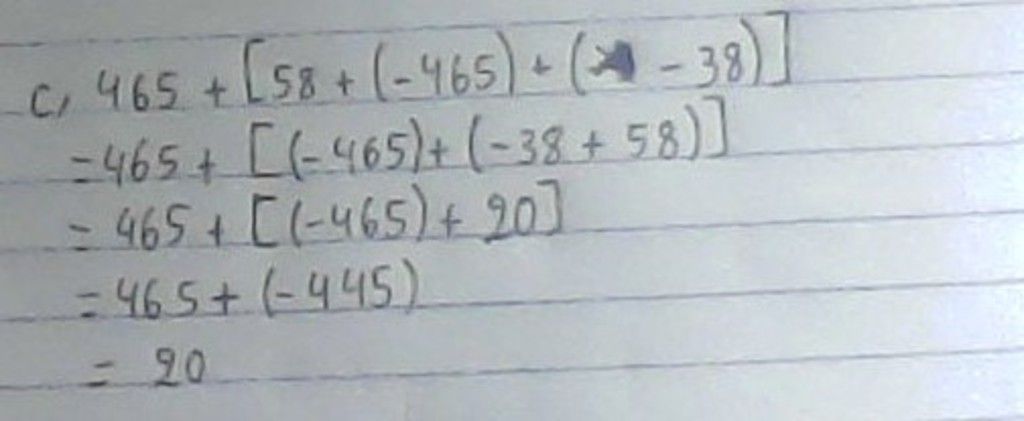 c, 465 + [58 + (-465) + ( - 38)]
= 465 + [(-465) + (-38 + 58)]
= 465 + [(-465) + 20]
= 465 + (-445)
= 20